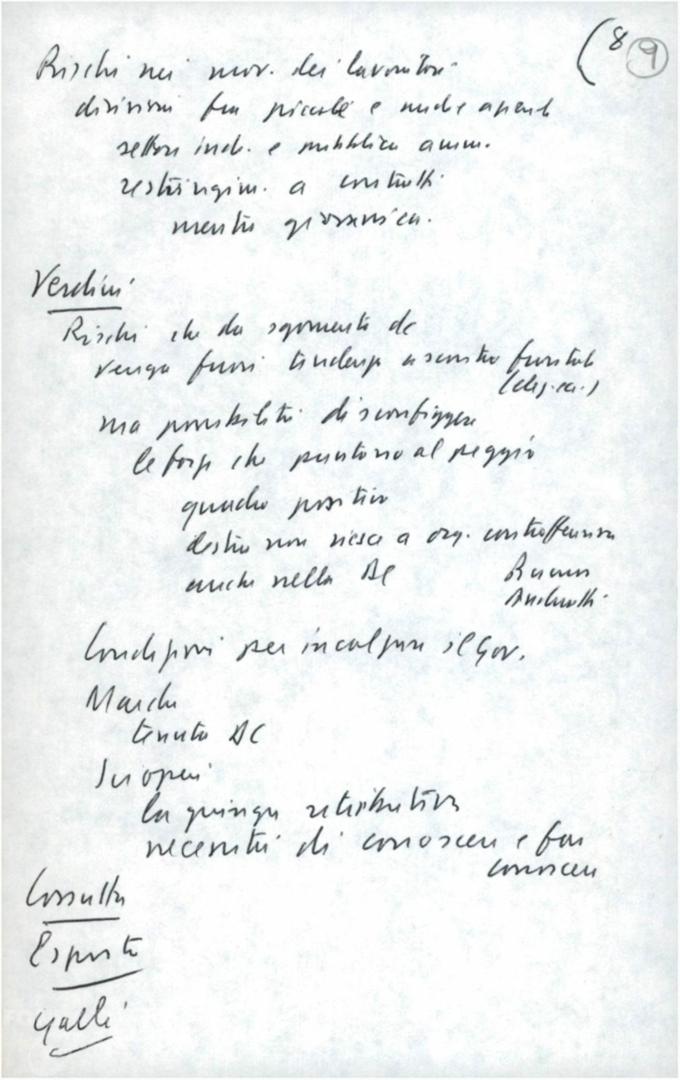 (8 9
Rischi nei mov. dei lavoratori
divisioni fra piccole e
settori ind. e pubblica amm.
restringim. a contratti
mentre
Verdini
Rischi che da sgomento dc
venga fuori tendenza a scontro frontale
ma possibilità di sconfiggere
le forze che puntano al peggio
quadro positivo
destra non riesce a org. controffensiva
anche nella DC
Andreotti
Condizioni per incalzare il Gov.
Marche
tenuta DC
Scioperi
la giungla retributiva
necessità di conoscere e far
conoscere
Cossutta
Esposto
Galli